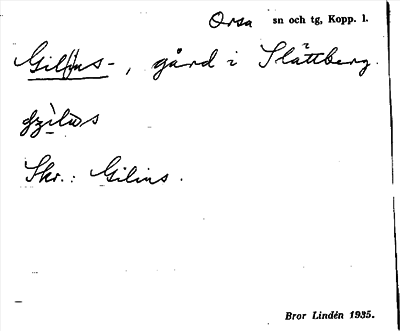 Orsa sn och tg, Kopp. l.
Gilfus-, gård i Slättberg.
Skr.: Gilius.
Bror Lindén 1935.